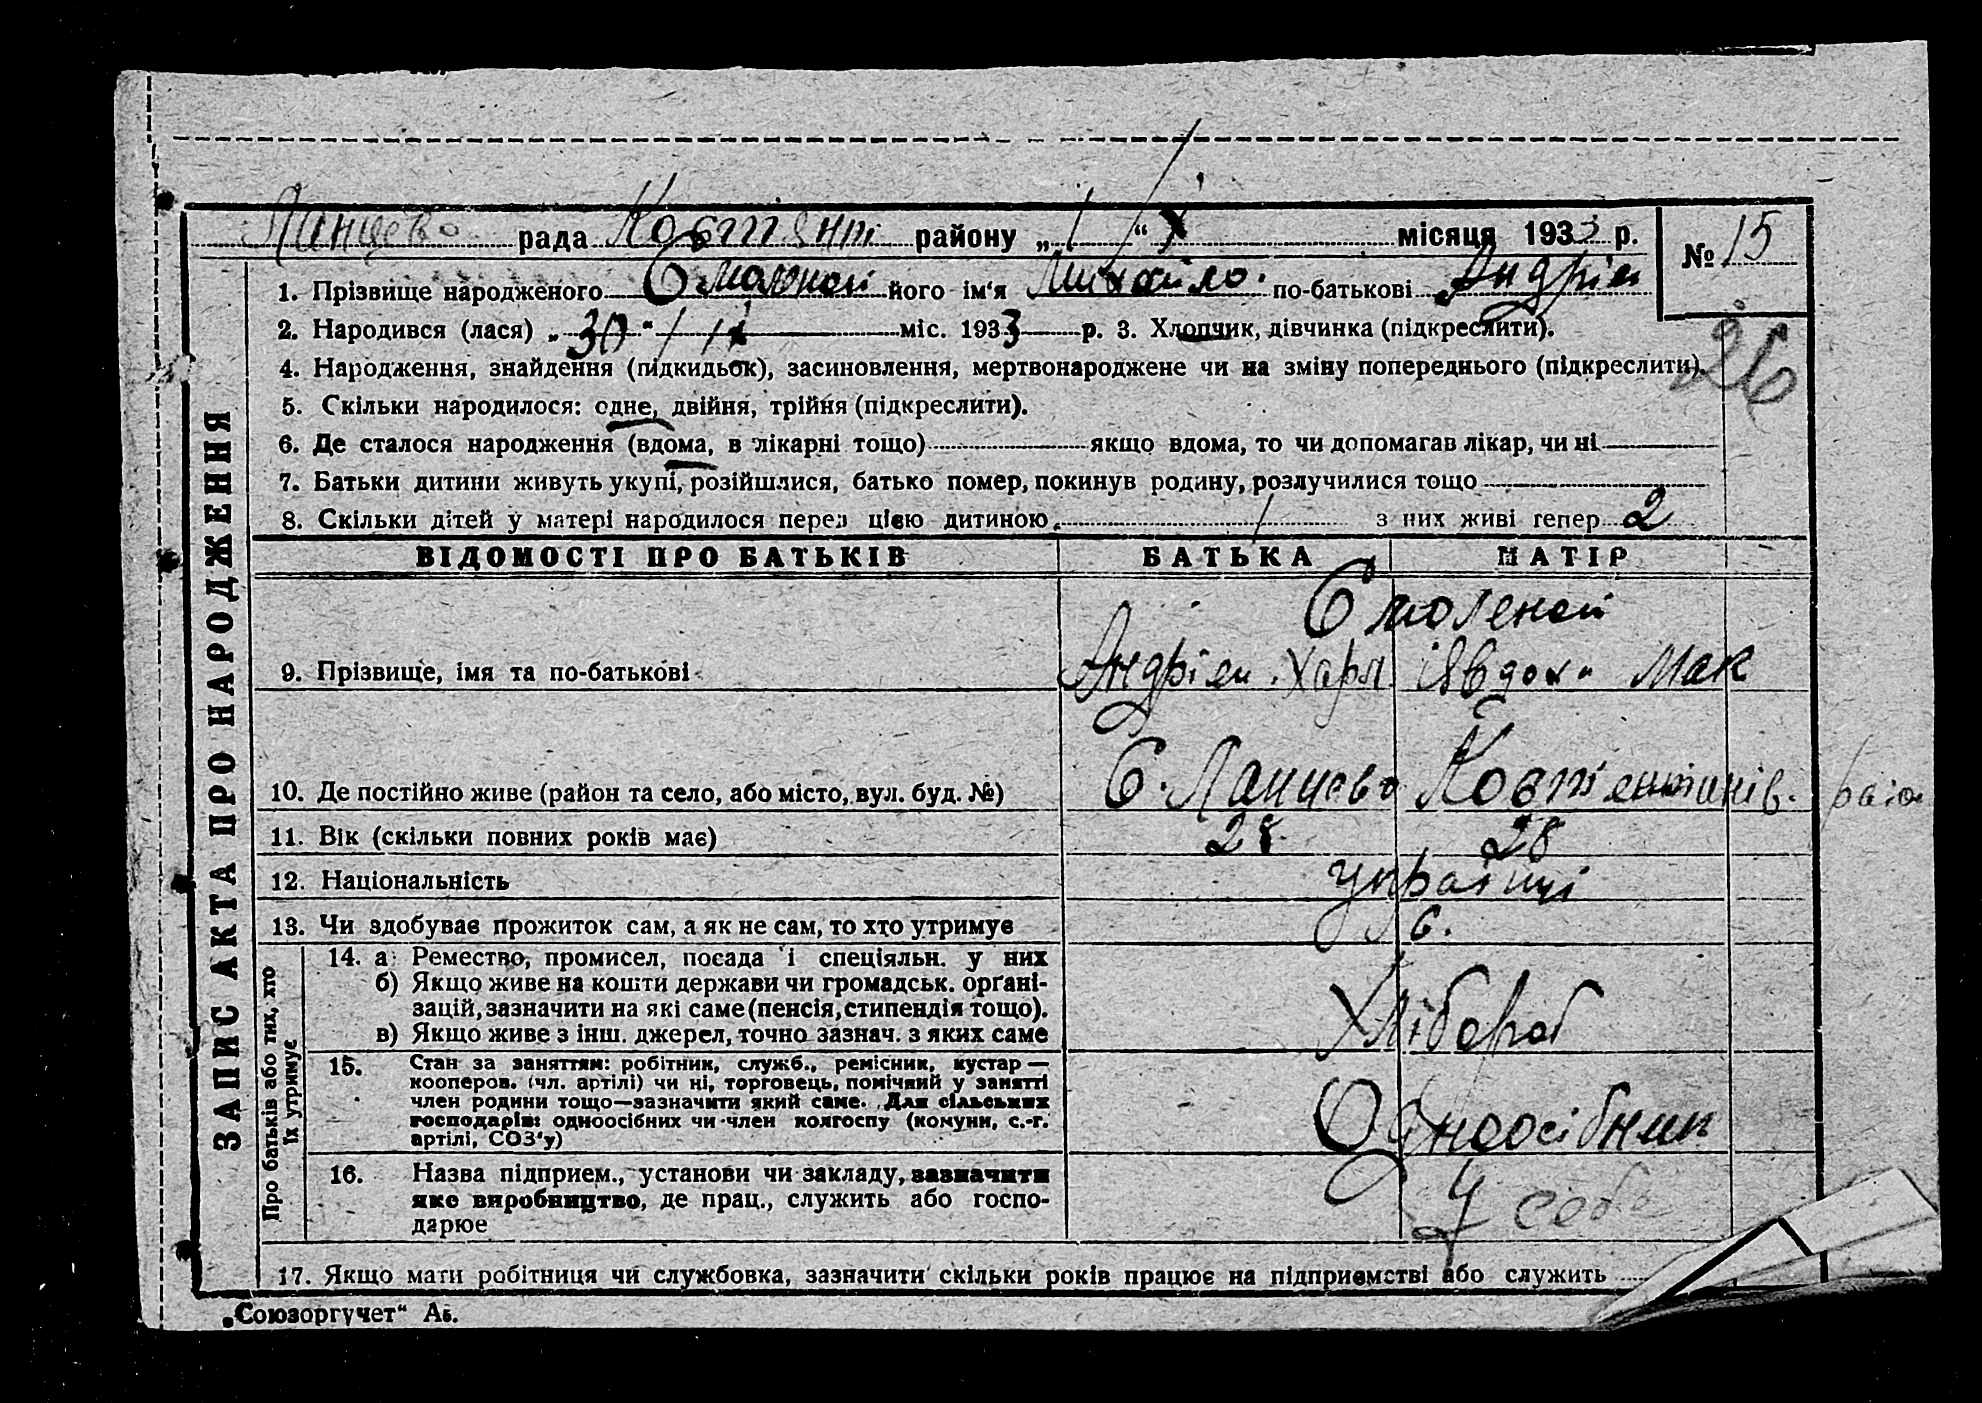 Ланцево рада Костянт району „1“ X місяця 1933 р. № 15
1. Прізвище народженого його ім'я Михайло по-батькові Андрієв
2. Народився (лася) „30“ міс. 1933 р. 3. Хлопчик, дівчинка (підкреслити).
26
4. Народження, знайдення (підкидьок), засиновлення, мертвонароджене чи на зміну попереднього (підкреслити).
5. Скільки народилося: одне, двійня, трійня (підкреслити).
6. Де сталося народження (вдома, в лікарні тощо) якщо вдома, то чи допомагав лікар, чи ні
7. Батьки дитини живуть укупі, розійшлися, батько помер, покинув родину, розлучилися тощо
8. Скільки дітей у матері народилося перед цією дитиною / з них живі тепер 2
ВІДОМОСТІ ПРО БАТЬКІВ БАТЬКА МАТІР
Смоленой
9. Прізвище, імя та по-батькові Андрієв. Харл Явдоха Мак
10. Де постійно живе (район та село, або місто, вул. буд. №) С. Ланцево Костянтинів. район
11. Вік (скільки повних років має) 28 28
12. Національність українці
13. Чи здобуває прожиток сам, а як не сам, то хто утримує с.
14. а) Ремество, промисел, посада і спеціяльн. у них
б) Якщо живе на кошти держави чи громадськ. органі-
зацій, зазначити на які саме (пенсія, стипендія тощо).
в) Якщо живе з інш. джерел, точно зазнач. з яких саме
Хлібороб
15. Стан за заняттям: робітник, служб., ремісник, кустар —
кооперов. (чл. артілі) чи ні, торговець, помічний у занятті
член родини тощо—зазначити який саме. Для сільських
господарів: одноосібних чи член колгоспу (комуни, с.-г.
артілі, СОЗ'у)
Одноосібник
16. Назва підприєм., установи чи закладу, зазначити
яке виробництво, де прац., служить або госпо-
дарює
У себе
17. Якщо мати робітниця чи службовка, зазначити скільки років працює на підприємстві або служить
„Союзоргучет“ Аб.
ЗАПИС АКТА ПРО НАРОДЖЕННЯ
Про батьків або тих, хто
їх утримує